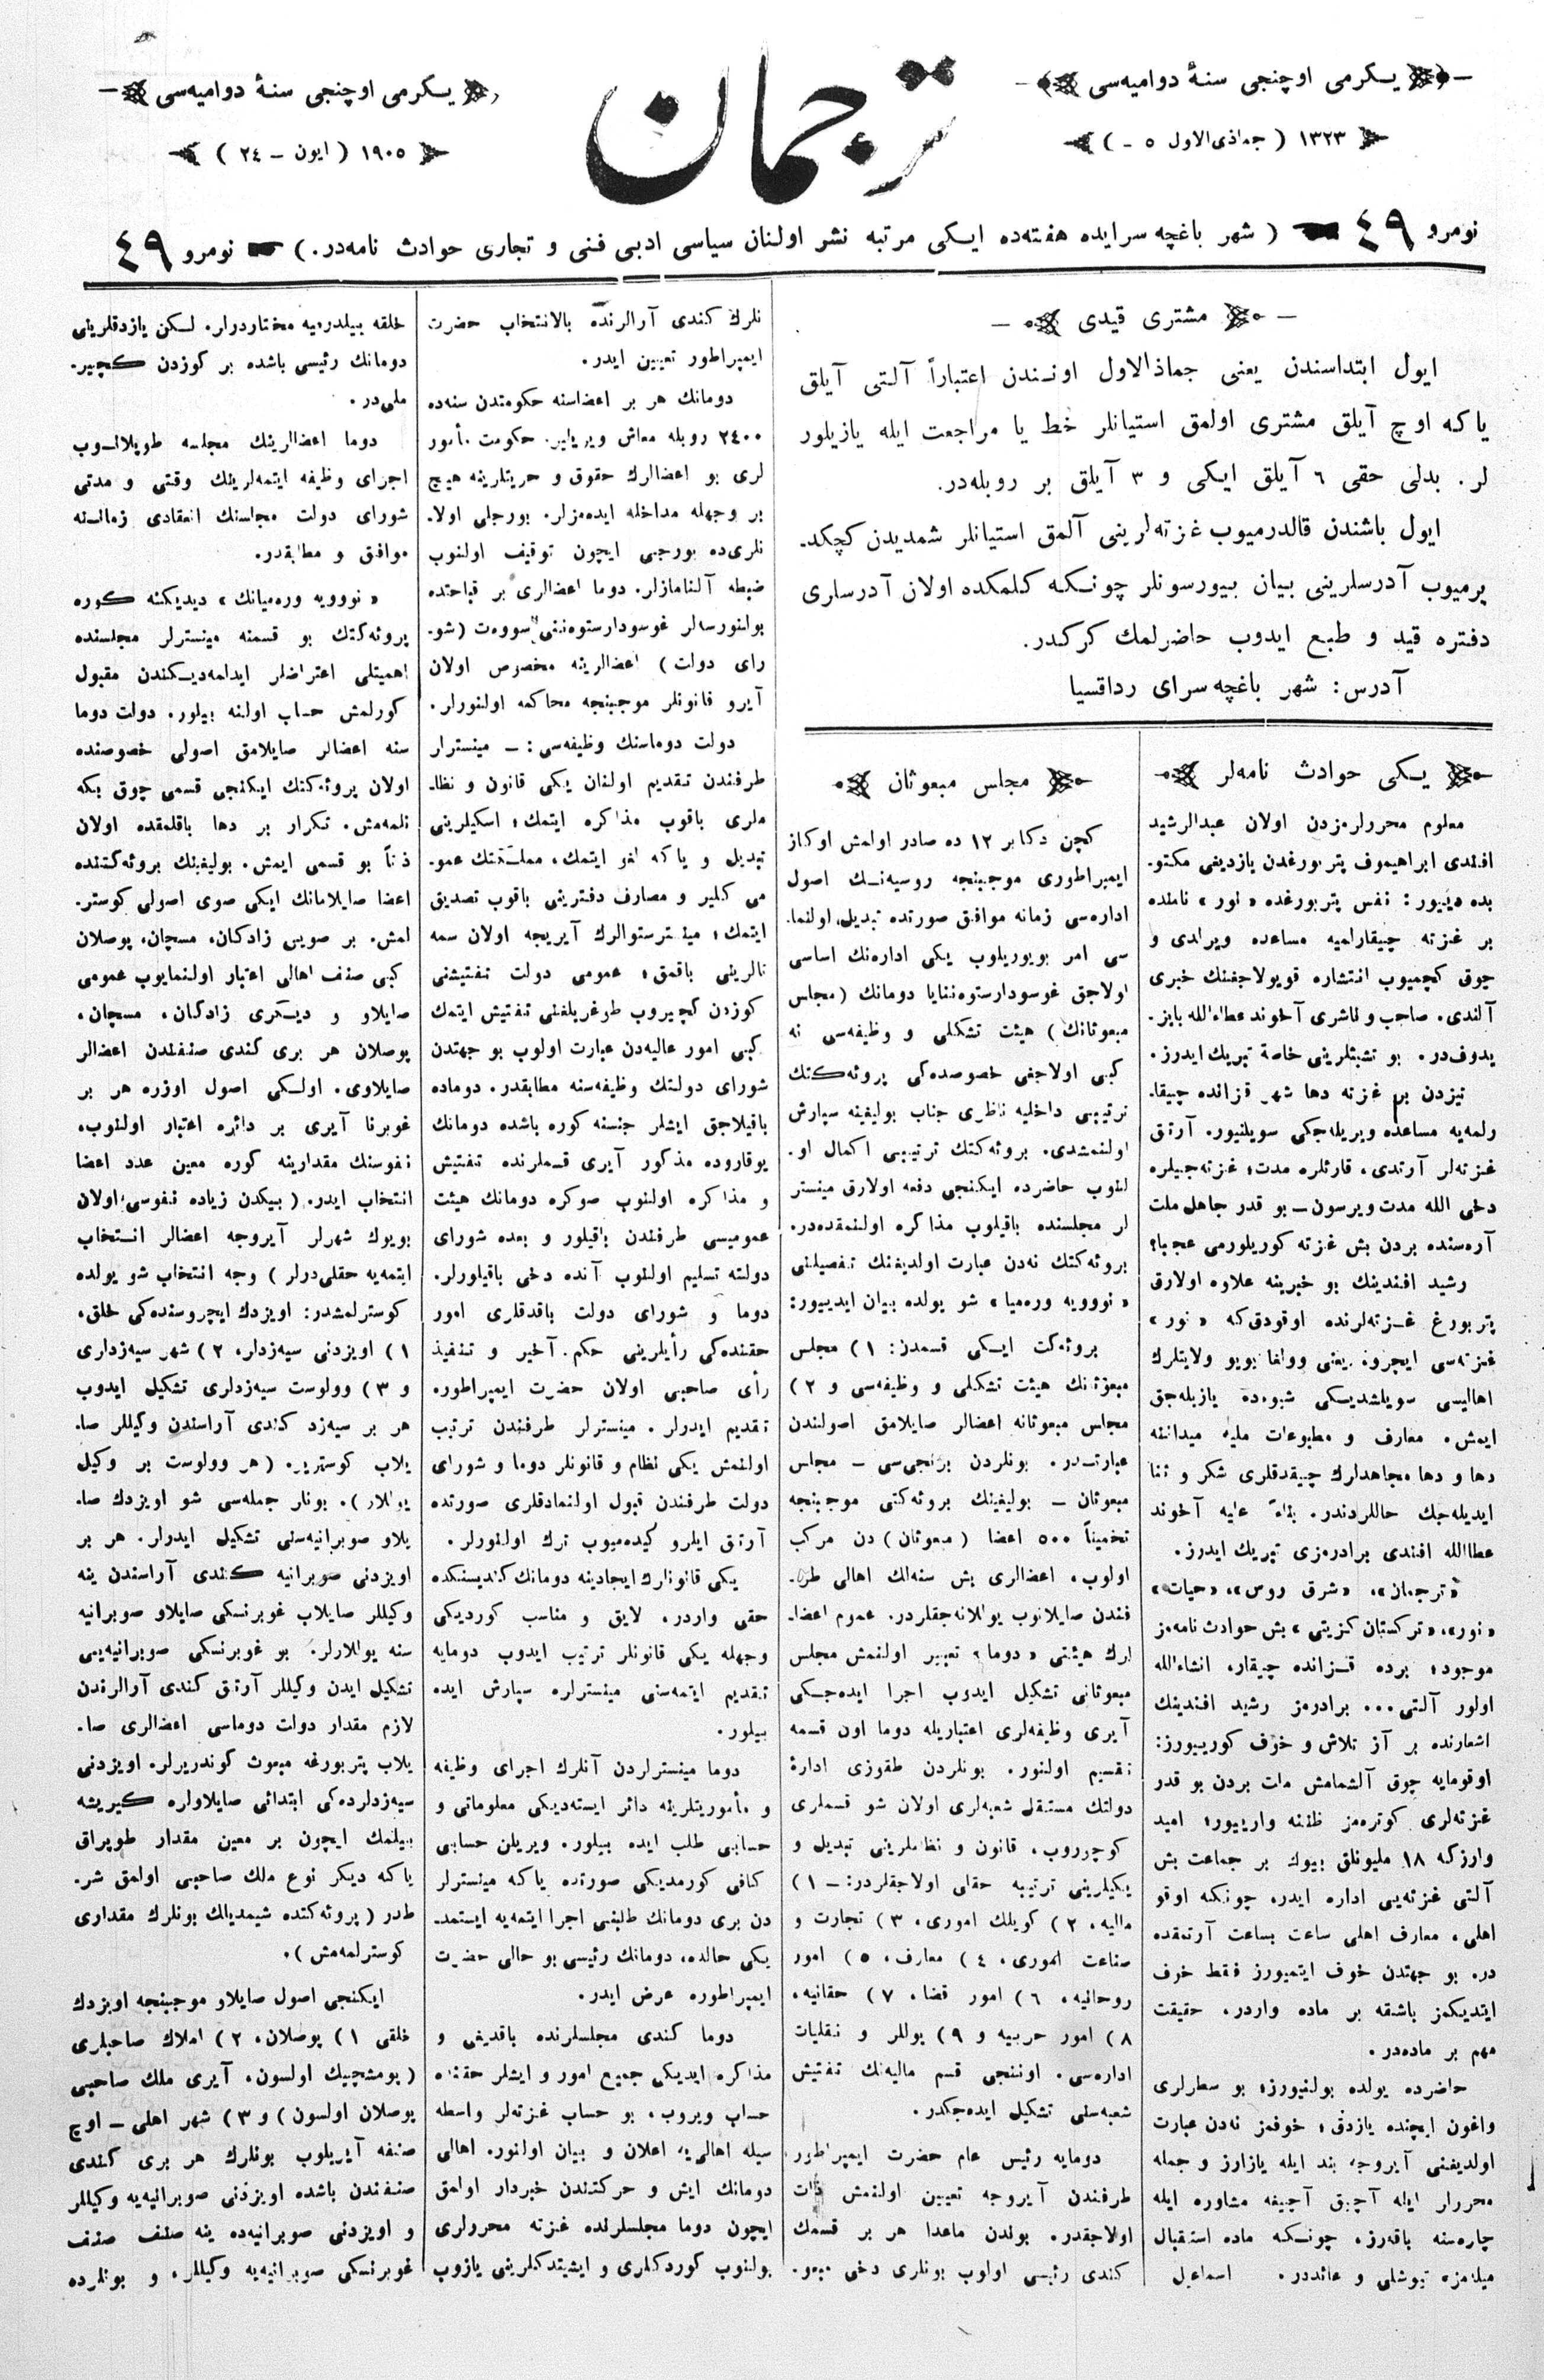 یـکرمی اوچنجی سنهٔ دوامیه‌سی
ترجمان
یـکرمی اوچنجی سنهٔ دوامیه‌سی
١٣٢٣ ( جماذی‌الاول ٥ - )
١٩٠٥ ( ایون - ٢٤ )
نومرو ٤٩ ( شهر باغچه سرایده هفته‌ده ایـکی مرتبه نشر اولنان سیاسی ادبی فنی و تجاری حوادث نامه‌در. ) نومرو ٤٩
مشتری قیدی
ایول ابتداسندن یعنی جماذالاول اونـندن اعتباراً آلـتی آیلق
یاکه اوچ آیلق مشتری اولمق استیانلر خط یا مراجعت ایله یازیلور
لر. بدلی حقی ٦ آیلق ایـکی و ٣ آیلق بر روبله‌در.
ایول باشندن قالدرمیوب غزته‌لرینی آلمق استیانلر شمدیدن کچکـد
یرمیوب آدرسلرینی بیان بیورسونلر چونـکـه کلمکده اولان آدرسلری
دفتره قید و طبع ایدوب حاضرلمك کرکدر.
آدرس: شهر باغچه‌سرای رداقسیا
یـکی حوادث نامه‌لر
معلوم محررلرمزدن اولان عبدالرشید
افندی ابراهیموف پتربورغدن یازدیغی مکتو-
بده دییور: نفس پتربورغده «نور» نامنده
بر غزته چیقارلمیه مساعده ویرلدی و
چوق کچمیوب انتشاره قویولاجغنك خبری
آلندی. صاحب و ناشری آخوند عطاءالله بایز-
یدوف‌در. بو تشبثلرینی خاصة تبریك ایدرز.
تیزدن بر غزته دها شهر قزانده چیقا-
رلمه‌یه مساعده ویریله‌جکی سویلنیور. آرتق
غزته‌لر آرتدی، قارئلره مدت؛ غزته‌جیلره
دخی الله مدت ویرسون - بو قدر جاهل ملت
آره‌سنده بردن بش غزته کوریلورمی عجبا؟
رشید افندینك بو خبرینه علاوه اولارق
پتربورغ غـزته‌لرنده اوقودق‌که «نور»
غزته‌سی ایچروء یعنی وولغا بویو ولایتلرك
اهالیسی سویلشدیـکی شیوه‌ده یازیله‌جق
ایمش. معارف و مطبوعات ملیه میداننه
دها و دها مجاهدلرك چیقدقلری شکر و ثنا
ایدیله‌جك حاللردندر. بناءً علیه آخوند
عطاالله افندی برادرمزی تبریك ایدرز.
«ترجمان»، «شرق روس»، «حیات»
«نور»، «ترکستان کزیتی» بش حوادث نامه‌مز
موجود؛ برده قـزانده چیقار، انشاءالله
اولور آلتی... برادرمز رشید افندینك
اشعارنده بر آز تلاش و خوف کورییورز:
اوقومایه چوق آلشمامش ملت بردن بو قدر
غزته‌لری کوتره‌مز ظننه وارییور؛ امید
وارزکه ١٨ ملیونلق بیوك بر جماعت بش
آلتی غزته‌یی اداره ایدر، چونکه اوقو
اهلی، معارف اهلی ساعت بساعت آرتمقده
در. بو جهتدن خوف ایتمیورز فقط خوف
ایتدیکمز باشقه بر ماده واردر. حقیقت
مهم بر ماده‌در.
حاضرده یولده بولنیورز؛ بو سطرلری
واغون ایچنده یازدق؛ خوفمز نه‌دن عبارت
اولدیغنی آیروجه بند ایله یازارز و جمله
محررلر ایله آچیق آچیغه مشاوره ایله
چاره‌سنه باقه‌رز، چونـکه ماده استقبال
ملیه‌مزه تیوشلی و عائددر. اسماعیل
مجلس مبعوثان
کچن دکابر ١٢ ده صادر اولمش اوکاز
ایمپراطوری موجبنجه روسیه‌نـك اصول
اداره‌سی زمانه موافق صورتده تبدیل اولنما-
سی امر بویوریلوب یکی اداره‌نك اساسی
اولاجق غوسودارستوه‌ننایا دومانك (مجلس
مبعوثانك) هیئت تشکلی و وظیفه‌سی نه
کبی اولاجغی خصوصده‌کی پروئه‌کتك
ترتیبی داخلیه ناظری جناب بولیغینه سپارش
اولنمشدی. بروئه‌کتك ترتیبی اکمال او-
لنوب حاضرده ایکنجی دفعه اولارق مینستر
لر مجلسنده باقیلوب مذاکره اولنمقده‌در.
بروئه‌کتك نه‌دن عبارت اولدیغنك تفصیلنی
«نوویه وره‌میا» شو یولده بیان ایدییور:
بروئه‌کت ایـکی قسمدن: ١) مجلس
مبعوثانك هیئت تشکلی و وظیفه‌سی و ٢)
مجلس مبعوثانه اعضالر صایلامق اصولندن
عبارتـدر. بونلردن برنجی‌سی - مجلس
مبعوثان - بولیغینك بروئه‌کتی موجبنجه
تخمیناً ٥٠٠ اعضا (مبعوثان) دن مرکب
اولوب، اعضالری بش سنه‌لك اهالی طر-
فندن صایلانوب یوللانه‌جقلردر. عموم اعضا-
لرك هیئتی «دوما» تعبیر اولنمش مجلس
مبعوثانی تشکیل ایدوب اجرا ایده‌جـکی
آیری وظیفه‌لری اعتباریله دوما اون قسمه
تقسیم اولنور. بونلردن طقوزی ادارهٔ
دولتك مستقل شعبه‌لری اولان شو قسملری
کوچرروب، قانون و نظاملرینی تبدیل و
یکیلرینی ترتیبه حقلی اولاجقلردر: - ١)
مالیه، ٢) کویلك اموری، ٣) تجارت و
صناعت اموری، ٤) معارف، ٥) امور
روحانیه، ٦) امور قضا، ٧) حقانیه،
٨) امور حربیه و ٩) یوللر و نقلیات
اداره‌سی. اوننجی قسم مالیه‌نك تفتیش
شعبه‌سنی تشکیل ایده‌جکدر.
دومایه رئیس عام حضرت ایمپراطور
طرفندن آیروجه تعیین اولنمش ذات
اولاجقدر. بوندن ماعدا هر بر قسمك
کندی رئیسی اولوب بونلری دخی
نلرك کندی آرالرندﻩ بالانتخاب حضرت
ایمپراطور تعیین ایدر.
دومانك هر بر اعضاسنه حکومتدن سنه‌ده
٢٤٠٠ روبله معاش ویریلیر. حکومت مأمور
لری بو اعضالرك حقوق و حریتلرینه هیچ
بر وجهله مداخله ایده‌مزلر. بورجلی اولا-
نلری‌ده بورجی ایچون توقیف اولنوب
ضبطه آلنامازلر. دوما اعضالری بر قباحتده
بولنورسه‌لر غوسودارستوه‌ننی سووه‌ت (شو-
رای دولت) اعضالرینه مخصوص اولان
آیرو قانونلر موجبنجه محاکمه اولنورلر.
دولت دوماسنك وظیفه‌سی: - مینسترلر
طرفندن تـقدیم اولنان یکی قانون و نظا-
ملری باقوب مذاکره ایتمك؛ اسکیلرینی
تبدیل و یاکه لغو ایتمك، مملـکتك عمو-
می کلیر و مصارف دفترینی باقوب تصدیق
ایتمك؛ مینسترستوالرك آیریجه اولان سمه
تالرینی باقمق؛ عمومی دولت تـفتیشنی
کوزدن کچیروب طوغریلغنی تـفتیش ایتمك
کبی امور عالیه‌دن عبارت اولوب بو جهتدن
شورای دولتك وظیفه‌سنه مطابقدر. دوماده
باقیلاجق ایشلر جنسنه کوره باشده دومانك
یوقاروده مذکور آیری قسملرنده تفتیش
و مذاکره اولنوب صوکره دومانك هیئت
عمومیسی طرفندن باقیلور و بعده شورای
دولته تسلیم اولنوب آنده دخی باقیلورلر.
دوما و شورای دولت باقدقلری امور
حقنده‌کی رأیلرینی حکم آخیر و تـنفیذ
رأی صاحبی اولان حضرت ایمپراطوره
تقدیم ایدرلر. مینسترلر طرفندن ترتب
اولنمش یکی نظام و قانونلر دوما و شورای
دولت طرفندن قبول اولنمادقلری صورتده
آرتق ایلرو کیده‌میوب ترك اولنورلر.
یکی قانونلرك ایجادینه دومانك کندیسنکده
حقی واردر. لایق و مناسب کوردیکی
وجهله یکی قانونلر ترتیب ایدوب دومایه
تقدیم ایتمه‌سنی مینسترلره سپارش ایده
بیلور.
دوما مینسترلردن آنلرك اجرای وظیفه
و مأموریتلرینه دائر ایسته‌دیکی معلوماتی و
حسابی طلب ایده بیلور. ویریلن حسابی
کافی کورمدیکی صورتده یاکه مینسترلر
دن بری دومانك طلبنی اجرا ایتمه‌یه ایستمد-
یکی حالده، دومانك رئیسی بو حالی حضرت
ایمپراطوره عرض ایدر.
دوما کندی مجلسلرنده باقدیغی و
مذاکره ایدیکی جمیع امور و ایشلر حقنده
حساب ویروب، بو حساب غزته‌لر واسطه
سیله اهالی‌یه اعلان و بیان اولنور. اهالی
دومانك ایش و حرکتندن خبردار اولمق
ایچون دوما مجلسلرنده غزته محررلری
بولنوب کوردکلری و ایشیتدکلرینی یازوب
خلقه بیلدرمیه مختاردرلر. لـکن یازدقلرینی
دومانك رئیسی باشده بر کوزدن کـچیر-
ملی‌در.
دوما اعضالرینك مجلسه طوپلانـوب
اجرای وظیفه ایتمه‌لرینك وقتی و مدتی
شورای دولت مجلسنك انعقادی زمانـنه
موافق و مطابقدر.
«نوویه وره‌میانك» دیدیکنه کوره
پروئه‌کتك بو قسمنه مینسترلر مجلسنده
اهمیتلی اعتراضلر ایدلمه‌دیـکندن مقبول
کورلمش حساب اولنه بیلور. دولت دوما
سنه اعضالر صایلامق اصولی خصوصنده
اولان پروئه‌کتك ایـکنجی قسمی چوق بکه
نلمه‌مش. تـکرار بر دها باقلمقده اولان
ذتاً بو قسمی ایمش. بولیغینك بروئه‌کتنده
اعضا صایلامانك ایکی صوی اصولی کوستر-
لمش. بر صویی زادکان، مسچان، پوصلان
کبی صنف اهالی اعتبار اولـنمایوب عمومی
صایلاو و دیـکری زادکان، مسچان،
پوصلان هر بری کندی صنفـندن اعضالر
صایلاوی. اولـکی اصول اوزره هر بر
غوبرنا آیری بر دائره اعتبار اولنوب،
نفوسنك مقدارینه کوره معین عدد اعضا
انتخاب ایدر. (بیکدن زیاده نفوسی اولان
بویوك شهرلر آیروجه اعضالر انـتخاب
ایتمه‌یه حقلی‌درلر) وجه انتخاب شو یولده
کوسترلمشدر: اویزدك ایچروسنده‌کی خلق،
١) اویزدنی سیه‌زدلر، ٢) شهر سیه‌زدلری
و ٣) وولوست سیه‌زدلری تشکیل ایدوب
هر بر سیه‌زد کندی آراسندن وکیللر صا-
یلاب کوستریر. (هر وولوست بر وکیل
یوللار). بونلر جمله‌سی شو اویزدك صا-
یلاو صوبرانیه‌سنی تشکیل ایدرلر. هر بر
اویزدنی صوبرانیه کـندی آراسندن ینه
وکیللر صایلاب غوبرنسکی صایلاو صوبرانیه
سنه یوللارلر. بو غوبرنسکی صوبرانیه‌یی
تشکیل ایدن وکیللر آرتق کندی آرالرندن
لازم مقدار دولت دوماسی اعضالری صا-
یلاب پتربورغه مبعوث کوندریرلر. اویزدنی
سیه‌زدلرده‌کی ابتدائی صایلاولره کـیریشه
بیلمك ایچون بر معین مقدار طوپراق
یاکه دیکر نوع ملك صاحبی اولمق شر-
طدر (پروئه‌کتده شیمدیلك بونلرك مقداری
کوسترلمه‌مش).
ایکنجی اصول صایلاو موجبنجه اویزدك
خلقی ١) پوصلان، ٢) املاك صاحبلری
(پومشچیك اولسون، آیری ملك صاحبی
پوصلان اولسون) و ٣) شهر اهلی - اوچ
صنفه آیریلوب بونلرك هر بری کندی
صنفندن باشده اویزدنی صوبرانیه‌یه وکیللر
و اویزدنی صوبرانیه‌ده ینه صنف صنف
غوبرنسکی صوبرانیه‌یه وکیللر، و بونلرده